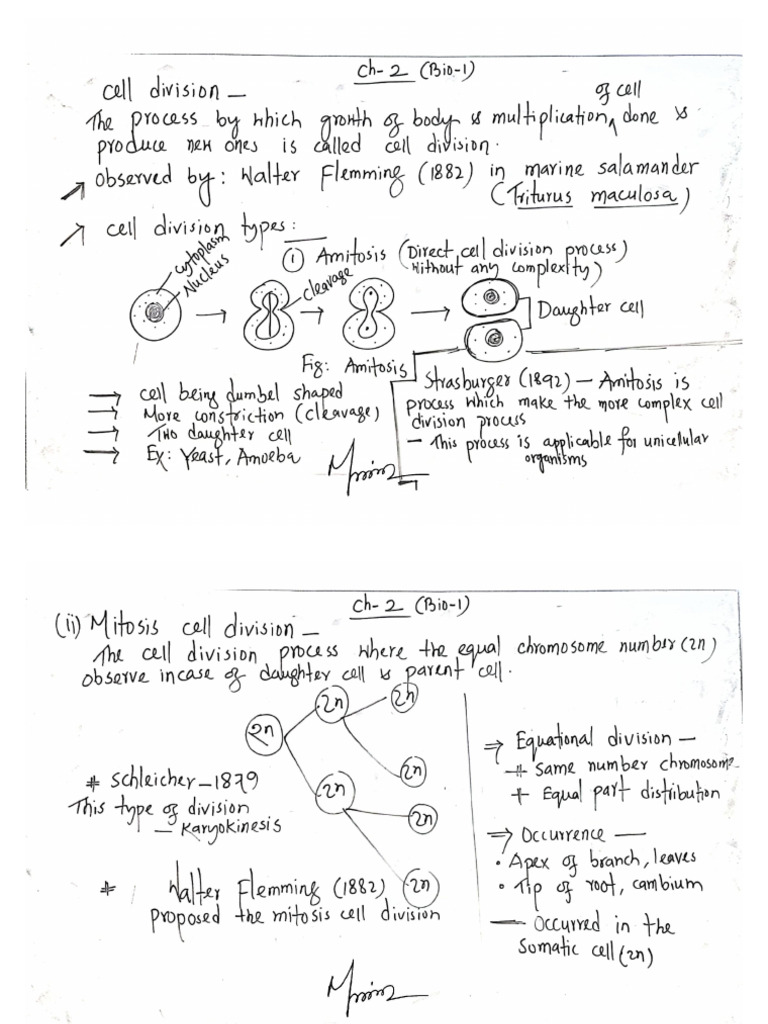 Ch-2 (Bio-1)
cell division —
of cell
The process by which growth of body & multiplication, done &
produce new ones is called cell division.
Observed by: Walter Flemming (1882) in marine salamander
(Triturus maculosa)
cell division types:
① Amitosis (Direct cell division process)
Without any complexity)
cytoplasm
Nucleus
cleavage
Daughter cell
Fig: Amitosis
→ cell being dumbel shaped
→ More constriction (cleavage)
→ Two daughter cell
→ Ex: Yeast, Amoeba
Strasburger (1892) — Amitosis is
process which make the more complex cell
division process
— This process is applicable for unicellular
organisms
Ch-2 (Bio-1)
(ii) Mitosis cell division —
The cell division process where the equal chromosome number (2n)
observe incase of daughter cell & parent cell.
2n
2n
2n
2n
2n
2n
2n
* Schleicher — 1879
This type of division
— Karyokinesis
* Walter Flemming (1882)
proposed the mitosis cell division
⇒ Equational division —
+ Same number chromosome
+ Equal part distribution
⇒ Occurrence —
• Apex of branch, leaves
• Tip of root, cambium
— Occurred in the
Somatic cell (2n)